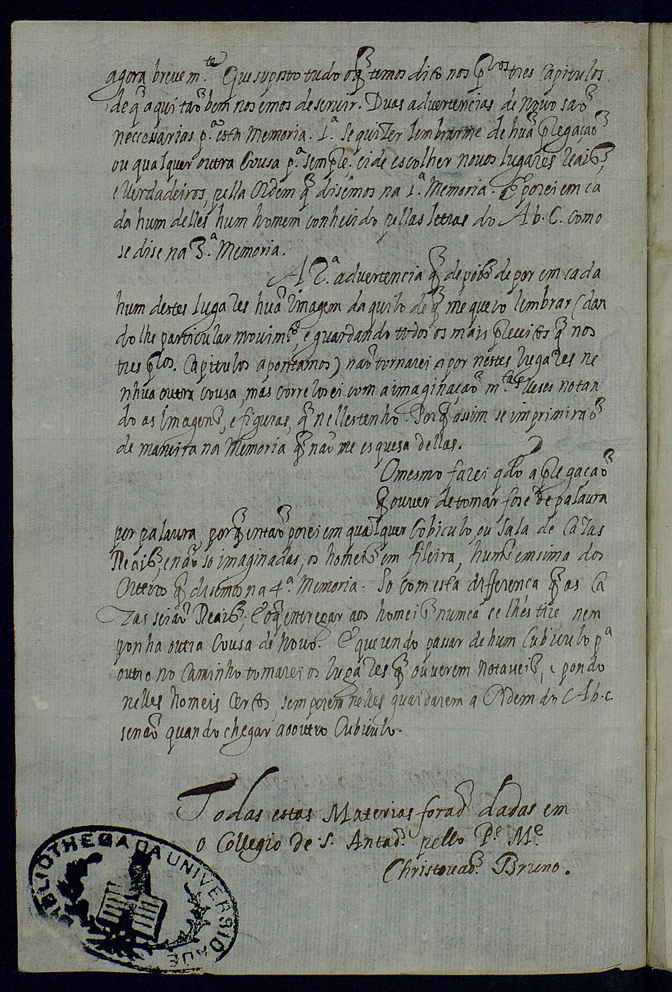 agora brevem.te Que suposto tudo o q̃ temos dito nos p.ros tres Capitulos
de q̃ aqui taõ bem nos emos de servir. Duas advertencias de novo saõ
necessarias p.ª esta Memoria. 1.ª se quizer lembrarme de huã p̃gaçaõ
ou qualquer outra Cousa p.ª sempre, ei de escolher novos lugares Reais,
e verdadeiros, pella Ordem q̃ disémos na 1.ª Memoria. E porei em ca
da hum delles hum homem conhecido pellas letras do A.b.C. como
se disse na 3.ª Memoria.
A 2.ª advertencia q̃ depois de por em cada
hum destes lugares huã Imagem daquilo de q̃ me quero lembrar (dan
dolhe particular movim.to, e guardando todos os mais preceitos q̃ nos
tres p.ros Capitulos apontamos) naõ tornarei a por nestes lugares ne
nhuã outra cousa, mas correlosei com a imaginaçaõ m.tas veses notan
do as Imagens, e figuras, q̃ nelles tenho. Porq̃ assim se imprimiraõ
de maneira na Memoria q̃ naõ me esqueça dellas.
O mesmo farei q.do a p̃gaçaõ
q̃ ouver de tomar fore de palavra
por palavra, porq̃ entaõ porei em qualquer Cobiculo, ou Sala de Cazas
Reais, e naõ so imaginadas, os homeis em fileira, huns emsima dos
Outros q̃ disemos na 4.ª Memoria. So com esta differença q̃ as Ca
zas seraõ Reais; E o q̃ entregar aos homeis nunca se lhes tire, nem
ponha outra Cousa de Novo. E querendo passar de hum Cubiculo p.ª
outro no Caminho tomarei os lugares q̃ ouverem notaveis, e pondo
nelles homeis certos, sem porem nelles guardarem a Ordem do A.b.c.
senaõ quando chegar ao outro Cubiculo.
Todas estas Materias foraõ dadas em
o Collegio de S. Antaõ pello P.e M.e
Christovaõ Bruno.
BIBLIOTHECA DA UNIVERSIDADE